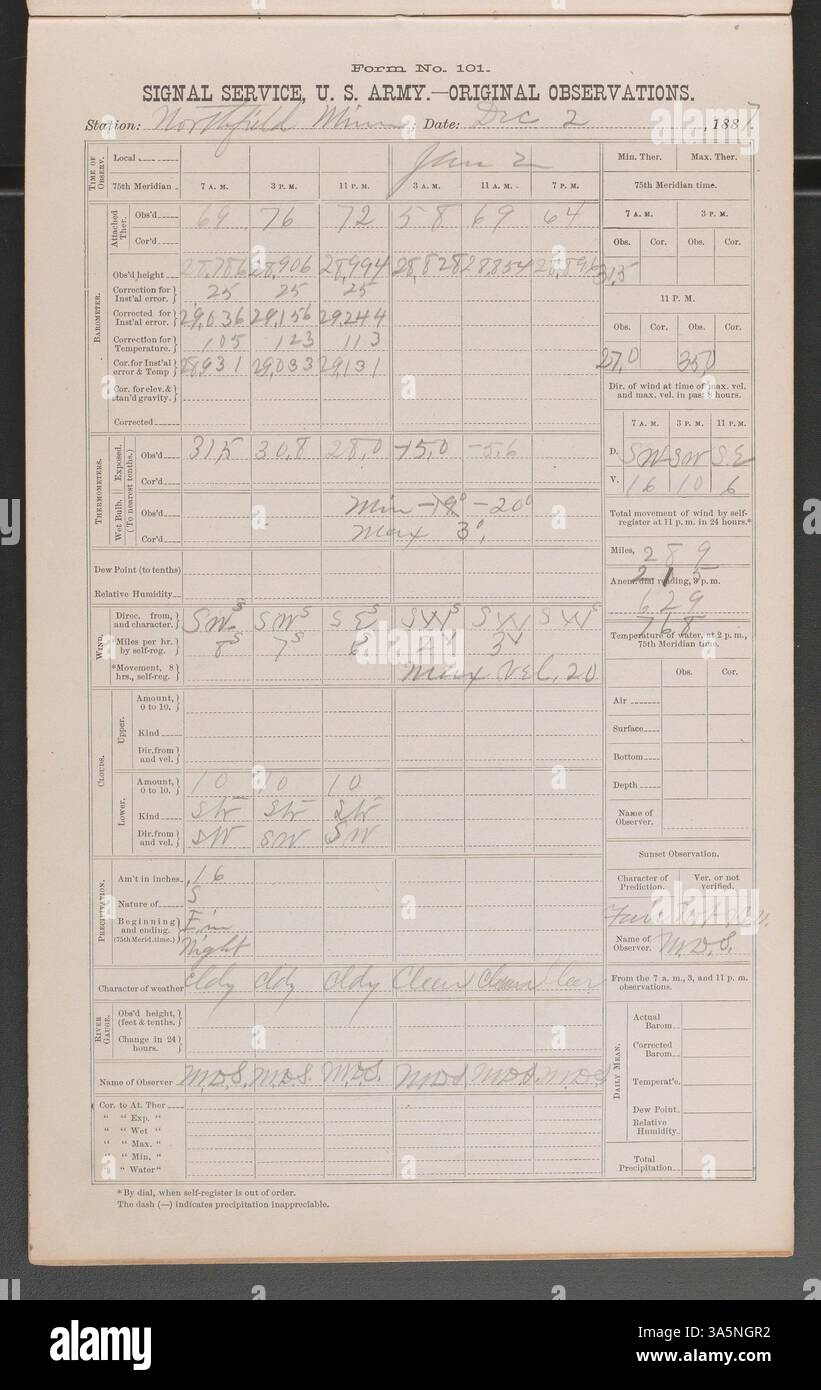 Form No. 101.
SIGNAL SERVICE, U. S. ARMY.—ORIGINAL OBSERVATIONS.
Station: Northfield Minn; Date: Dec 2, 1887.
TIME OF OBSERV.
Local
Jan 2
75th Meridian
7 A. M. 3 P. M. 11 P. M. 3 A. M. 11 A. M. 7 P. M.
BAROMETER.
Attached Ther.
Obs'd 69 76 72 58 69 64
Cor'd
Obs'd height 28,786 28,906 28,994 28,828 28,854
Correction for Inst'al error. 25 25 25
Corrected for Inst'al error. 29,036 29,156 29,244
Correction for Temperature. 105 123 113
Cor. for Inst'al error & Temp 28,931 29,033 29,131
Cor. for elev. & stan'd gravity.
Corrected
THERMOMETERS.
Exposed.
Wet Bulb.
(To nearest tenths.)
Obs'd 31,5 30,8 28,0 -15,0 -5,6
Cor'd
Obs'd Min -19° -20°
Cor'd Max 3°
Dew Point (to tenths)
Relative Humidity
WIND.
Direc. from, and character. SW S SW S SE S SW S SW S SW S
*Miles per hr. by self-reg. 8 S 7 S 6
*Movement, 8 hrs., self-reg. Max Vel, 20
CLOUDS.
Upper.
Amount, 0 to 10.
Kind
Dir. from and vel.
Lower.
Amount, 0 to 10. 10 10 10
Kind Str Str Str
Dir. from and vel. SW SW SW
PRECIPITATION.
Am't in inches ,16
Nature of S
Beginning and ending. (75th Merid. time.)
Night
Character of weather Cldy Cldy Cldy Clear Clear Clear
RIVER GAUGE.
Obs'd height, (feet & tenths.)
Change in 24 hours.
Name of Observer M.D.S. M.D.S. M.D.S. M.D.S. M.D.S. M.D.S.
Cor. to At. Ther
" " Exp. "
" " Wet "
" " Max. "
" " Min. "
" Water"
Min. Ther. Max. Ther.
75th Meridian time.
7 A. M. 3 P. M.
Obs. Cor. Obs. Cor.
31,5
11 P. M.
Obs. Cor. Obs. Cor.
27,0 35,0
Dir. of wind at time of max. vel. and max. vel. in past 8 hours.
7 A. M. 3 P. M. 11 P. M.
D. SW SW SE
V. 16 10 6
Total movement of wind by self-register at 11 p. m. in 24 hours.*
Miles, 289
215
Anem. dial reading, 3 p. m.
629
768
Temperature of water, at 2 p. m., 75th Meridian time.
Obs. Cor.
Air
Surface
Bottom
Depth
Name of Observer.
Sunset Observation.
Character of Prediction. Ver. or not verified.
Fair
Name of Observer. M.D.S.
From the 7 a. m., 3, and 11 p. m. observations.
DAILY MEAN.
Actual Barom
Corrected Barom
Temperat'e.
Dew Point
Relative Humidity
Total Precipitation
* By dial, when self-register is out of order.
The dash (—) indicates precipitation inappreciable.
alamy
Image ID: 3A5NGR2
www.alamy.com